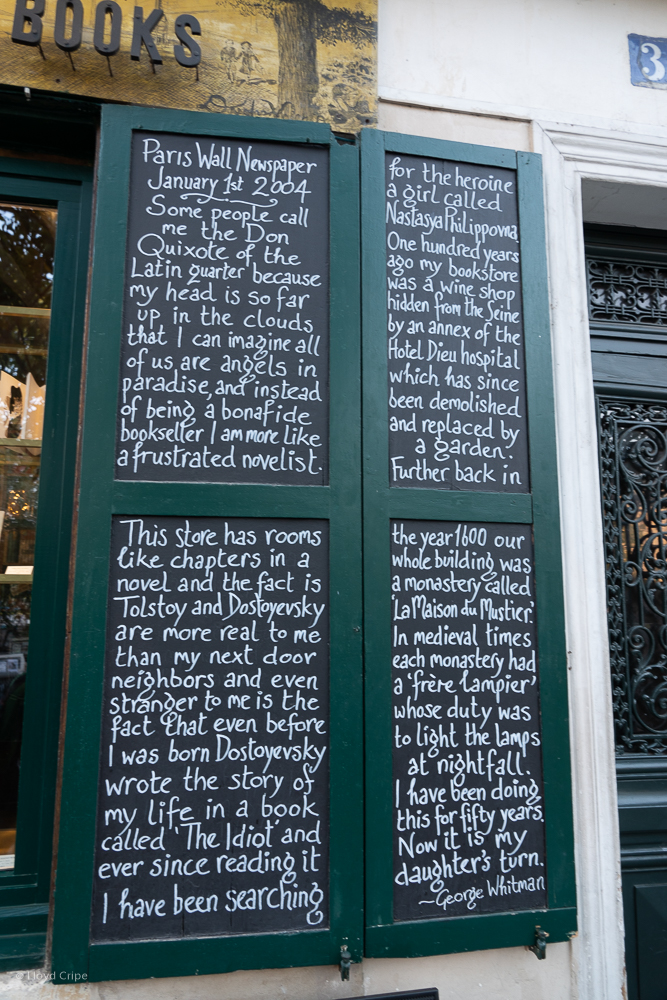 BOOKS
3
Paris Wall Newspaper
January 1st 2004
Some people call
me the Don
Quixote of the
Latin Quarter because
my head is so far
up in the clouds
that I can imagine all
of us are angels in
paradise, and instead
of being a bonafide
bookseller I am more like
a frustrated novelist.
This store has rooms
like chapters in a
novel and the fact is
Tolstoy and Dostoyevsky
are more real to me
than my next door
neighbors and even
stranger to me is the
fact that even before
I was born Dostoyevsky
wrote the story of
my life in a book
called 'The Idiot' and
ever since reading it
I have been searching
for the heroine
a girl called
Nastasya Philippovna.
One hundred years
ago my bookstore
was a wine shop
hidden from the Seine
by an annex of the
Hotel Dieu hospital
which has since
been demolished
and replaced by
a garden.
Further back in
the year 1600 our
whole building was
a monastery called
'La Maison du Mustier'.
In medieval times
each monastery had
a 'frère lampier'
whose duty was
to light the lamps
at nightfall.
I have been doing
this for fifty years.
Now it is my
daughter's turn.
~George Whitman
© Lloyd Cripe